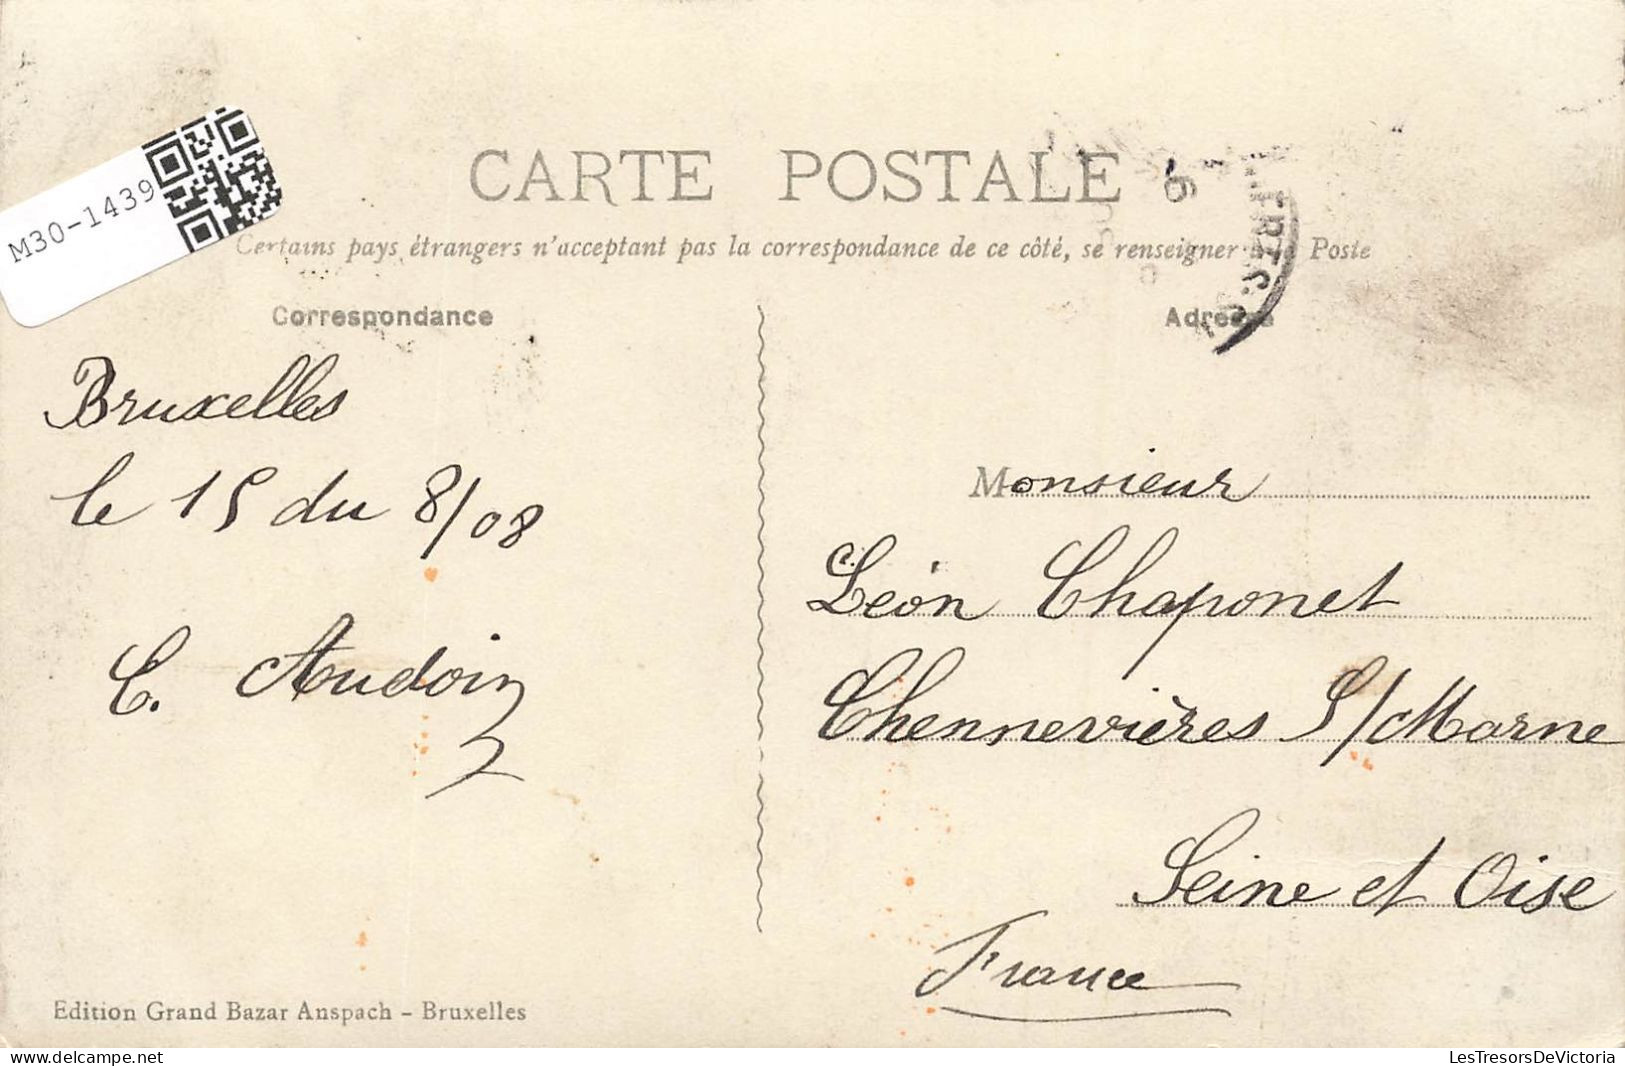 M30-1439
CARTE POSTALE
Certains pays étrangers n'acceptant pas la correspondance de ce côté, se renseigner Poste
Correspondance
Bruxelles
le 15 du 8/08
C. Audoin
Edition Grand Bazar Anspach - Bruxelles
Adresse
Monsieur
Léon Chaponet
Chennevières S/Marne
Seine et Oise
France
delcampe.net
LesTresorsDeVictoria